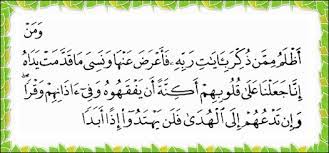 وَمَنْ
أَظْلَمُ مِمَّن ذُكِّرَ بِـَٔايَٰتِ رَبِّهِۦ فَأَعْرَضَ عَنْهَا وَنَسِىَ مَا قَدَّمَتْ يَدَاهُ
إِنَّا جَعَلْنَا عَلَىٰ قُلُوبِهِمْ أَكِنَّةً أَن يَفْقَهُوهُ وَفِىٓ ءَاذَانِهِمْ وَقْرًا ۖ
وَإِن تَدْعُهُمْ إِلَى ٱلْهُدَىٰ فَلَن يَهْتَدُوٓا۟ إِذًا أَبَدًا